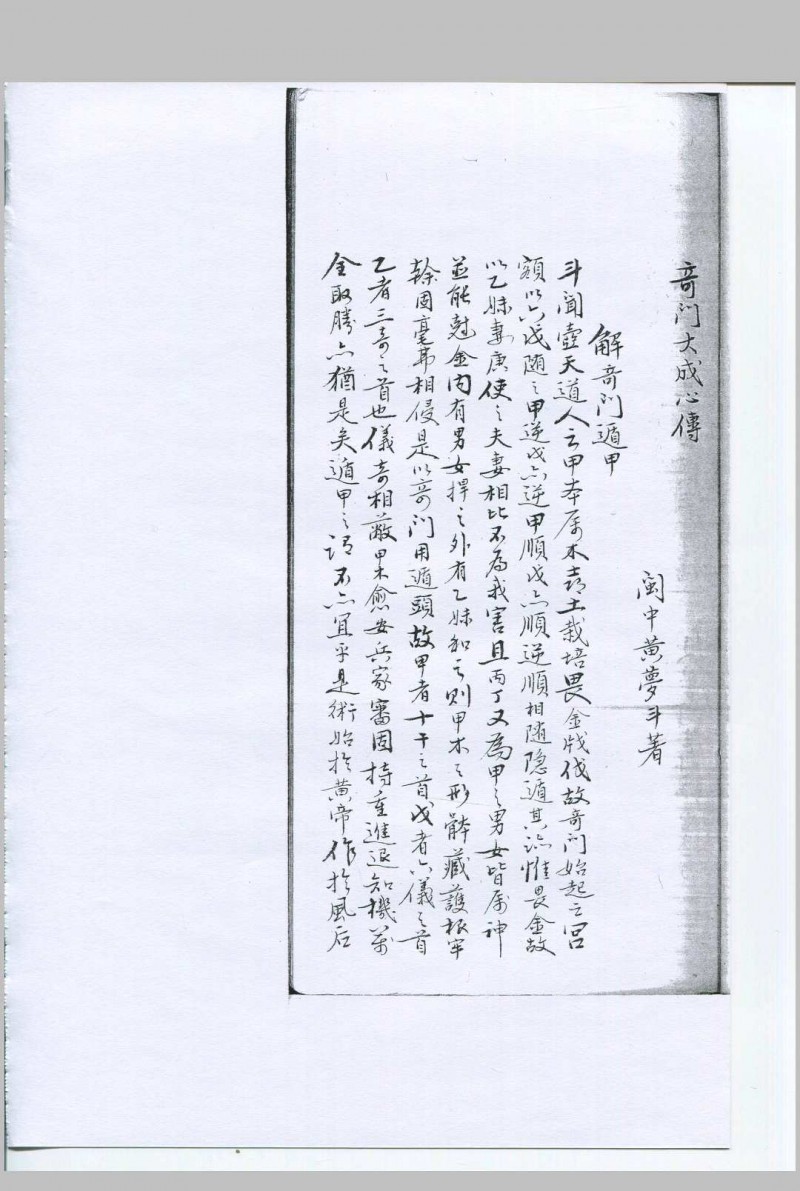 奇门大成心傳
閩中黄夢斗著
解奇门遁甲
斗聞壺天道人云甲本属木喜土栽培畏金戕伐故奇门始起之宫
額以六戊随之甲逆戊亦逆甲順戊亦順逆順相随隐遁其踪惟畏金故
以乙妹妻庚使之夫妻相比不為我害且丙丁又為甲之男女皆属神
並能尅金内有男女捍之外有乙妹和之则甲木之形骸藏護根牢
榦固毫弗相侵是以奇门用遁頭故甲者十干之首戊者六儀之首
乙者三奇之首也儀奇相蔽甲木愈安兵家審固持重進退知機萬
全取勝亦猶是矣遁甲之谓不亦宜乎是術始於黄帝作於風后